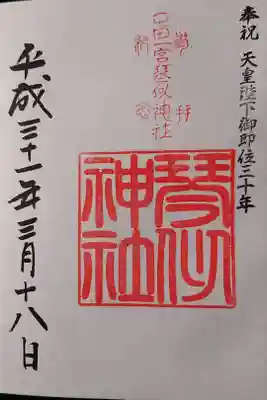 奉祝 天皇陛下御即位三十年
琴似神社
琴似
神社
平成三十一年三月十八日